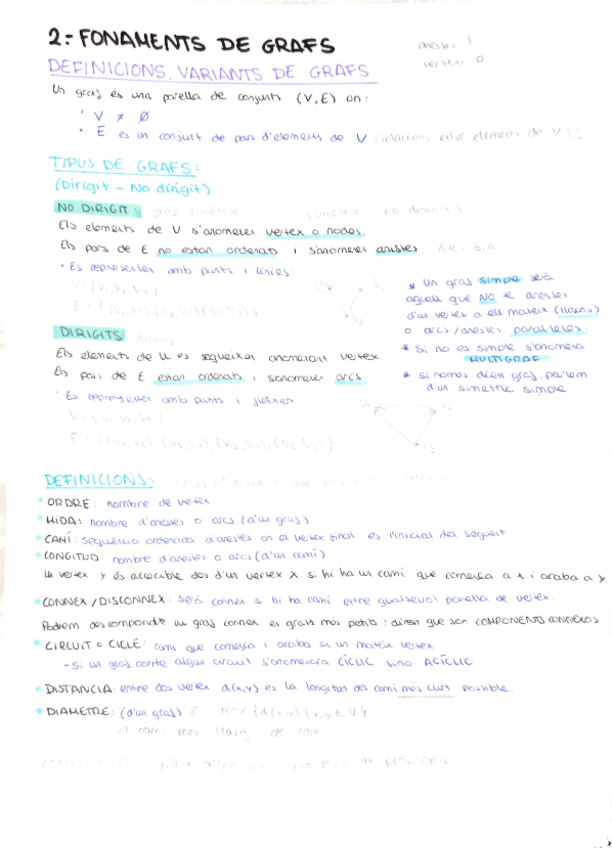 2: FONAMENTS DE GRAFS
DEFINICIONS, VARIANTS DE GRAFS
Un graf és una parella de conjunts (V, E) on:
V ≠ ∅
E es un conjunt de pars d'elements de V (relacions entre elements de V).
TIPUS DE GRAFS:
(Dirigit - No dirigit)
NO DIRIGIT: graf simetric (simetric - no dirigit)
Els elements de V s'anomenen vertex o nodes.
Els pars de E no estan ordenats i s'anomenen arestes
Es representen amb punts i línies
* Un graf simple serà
aquell que NO té arestes
d'un vertex a ell mateix (llaços)
o arcs/arestes paral·leles.
* Si no es simple s'anomena
MULTIGRAF
* si només diem graf, parlem
d'un simetric simple
DIRIGITS
Els elements de V es segueixen anomenant vertex
Els pars de E estan ordenats i s'anomenen arcs.
Es representen amb punts i fletxes
DEFINICIONS:
ORDRE: nombre de vertex
MIDA: nombre d'arestes o arcs (d'un graf)
CAMÍ: sequència ordenada d'arestes on el vertex final es l'inicial del seguent
LONGITUD: nombre d'arestes o arcs (d'un camí)
Un vertex y és accessible des d'un vertex x si hi ha un camí que comença a x i acaba a y.
CONNEX/DISCONNEX: serà connex si hi ha camí entre qualsevol parella de vertex.
Podem descompondre un graf connex en grafs més petits: diem que son COMPONENTS CONNEXOS
CIRCUIT o CICLE: camí que comença i acaba en un mateix vertex
- Si un graf conté algun circuit s'anomenarà CÍCLIC sino ACÍCLIC
DISTANCIA: entre dos vertex d(x,y) és la longitud del camí més curt possible.
DIAMETRE: (d'un graf) És max {d(x,y) | x,y ∈ V}
el camí més llarg de